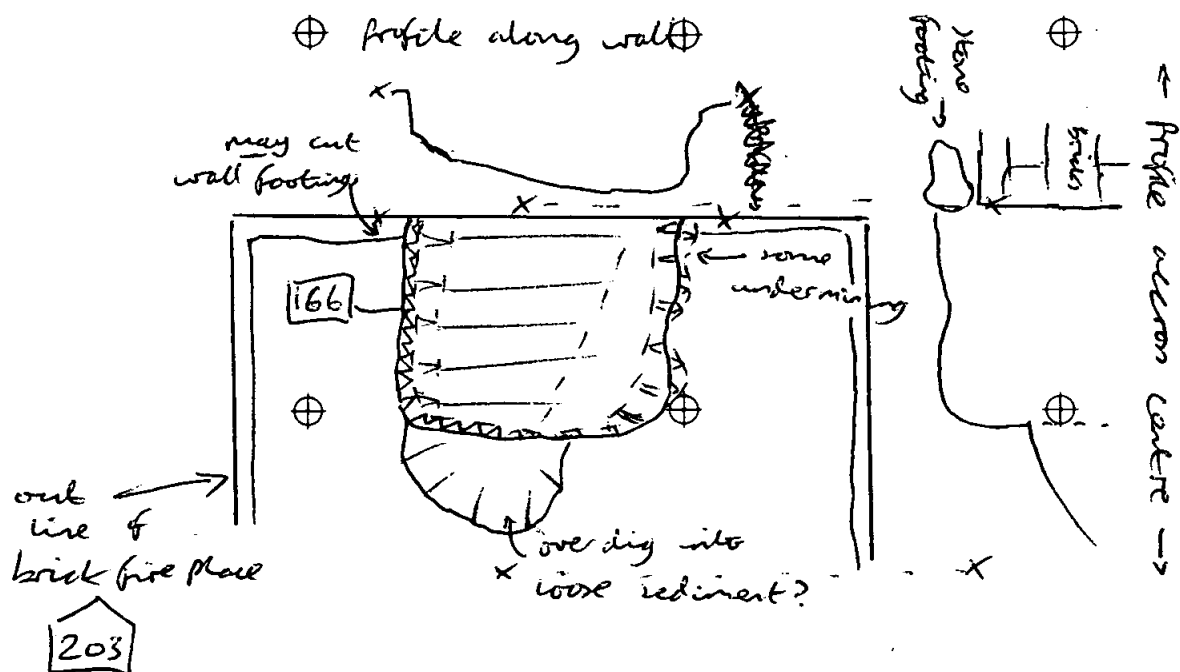 Profile along wall
may cut
wall footing
166
some
undermining
out
line of
brick fire place
203
over dig into
loose sediment?
stone
footing
bricks
Profile across centre